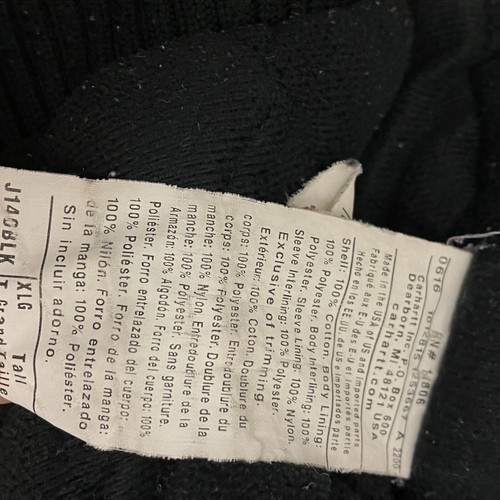 0616
RN# 14806
Carhartt Inc.
Dearborn, MI
P.O. Box 600
48121 USA
carhartt.com
Made in the USA of US and imported parts
Fabriqué aux E-U
Hecho en los EE UU de US e importados partie
Shell: 100% Cotton. Body Lining:
100% Polyester. Body Interlining: 100%
Polyester. Sleeve Lining: 100% Nylon.
Sleeve Interlining: 100% Polyester.
Exclusive of trimming.
Extérieur: 100% Coton. Doublure du
corps: 100% Polyester. Entredoublure du
corps: 100% Polyester. Doublure de la
manche: 100% Nylon. Entredoublure de la
manche: 100% Polyester. Sans garniture.
Armazón: 100% Algodón. Forro del cuerpo:
100% Poliéster. Forro entrelazado del cuerpo: 100%
Poliéster. Forro de la manga:
100% Nilón. Forro entrelazado
de la manga: 100% Poliéster.
Sin incluir adorno.
J140BLK
XLG Tall
T Grand Taille